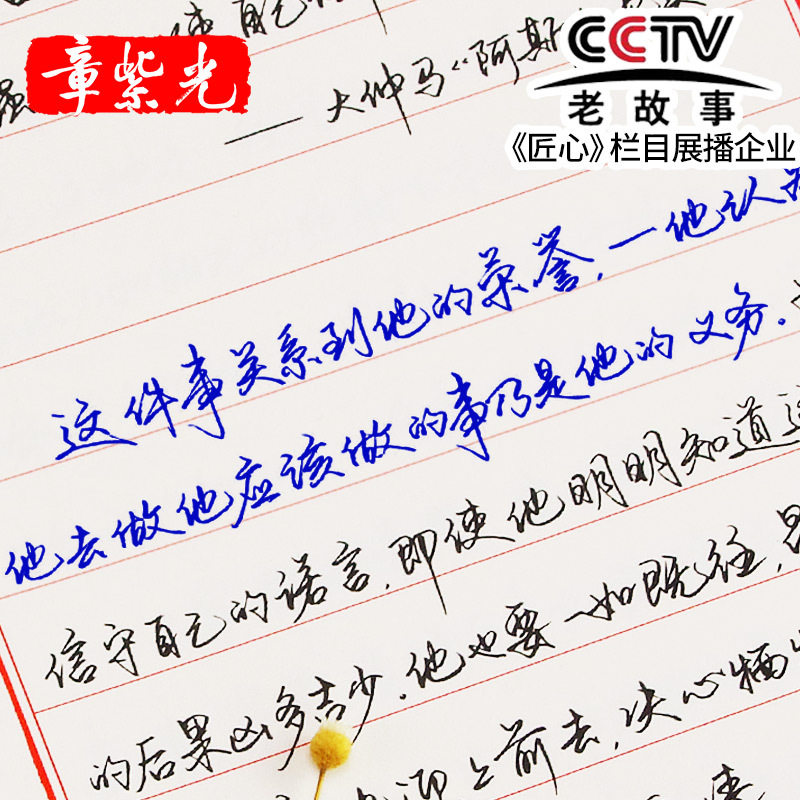 章紫光
CCTV
老故事
《匠心》栏目展播企业
使自己
——大仲马《阿斯
这件事关系到他的荣誉,一他认为
他去做他应该做的事乃是他的义务.
信守自己的诺言,即使他明明知道这
的后果凶多吉少.他也要一如既往,
迎上前去,决心牺牲